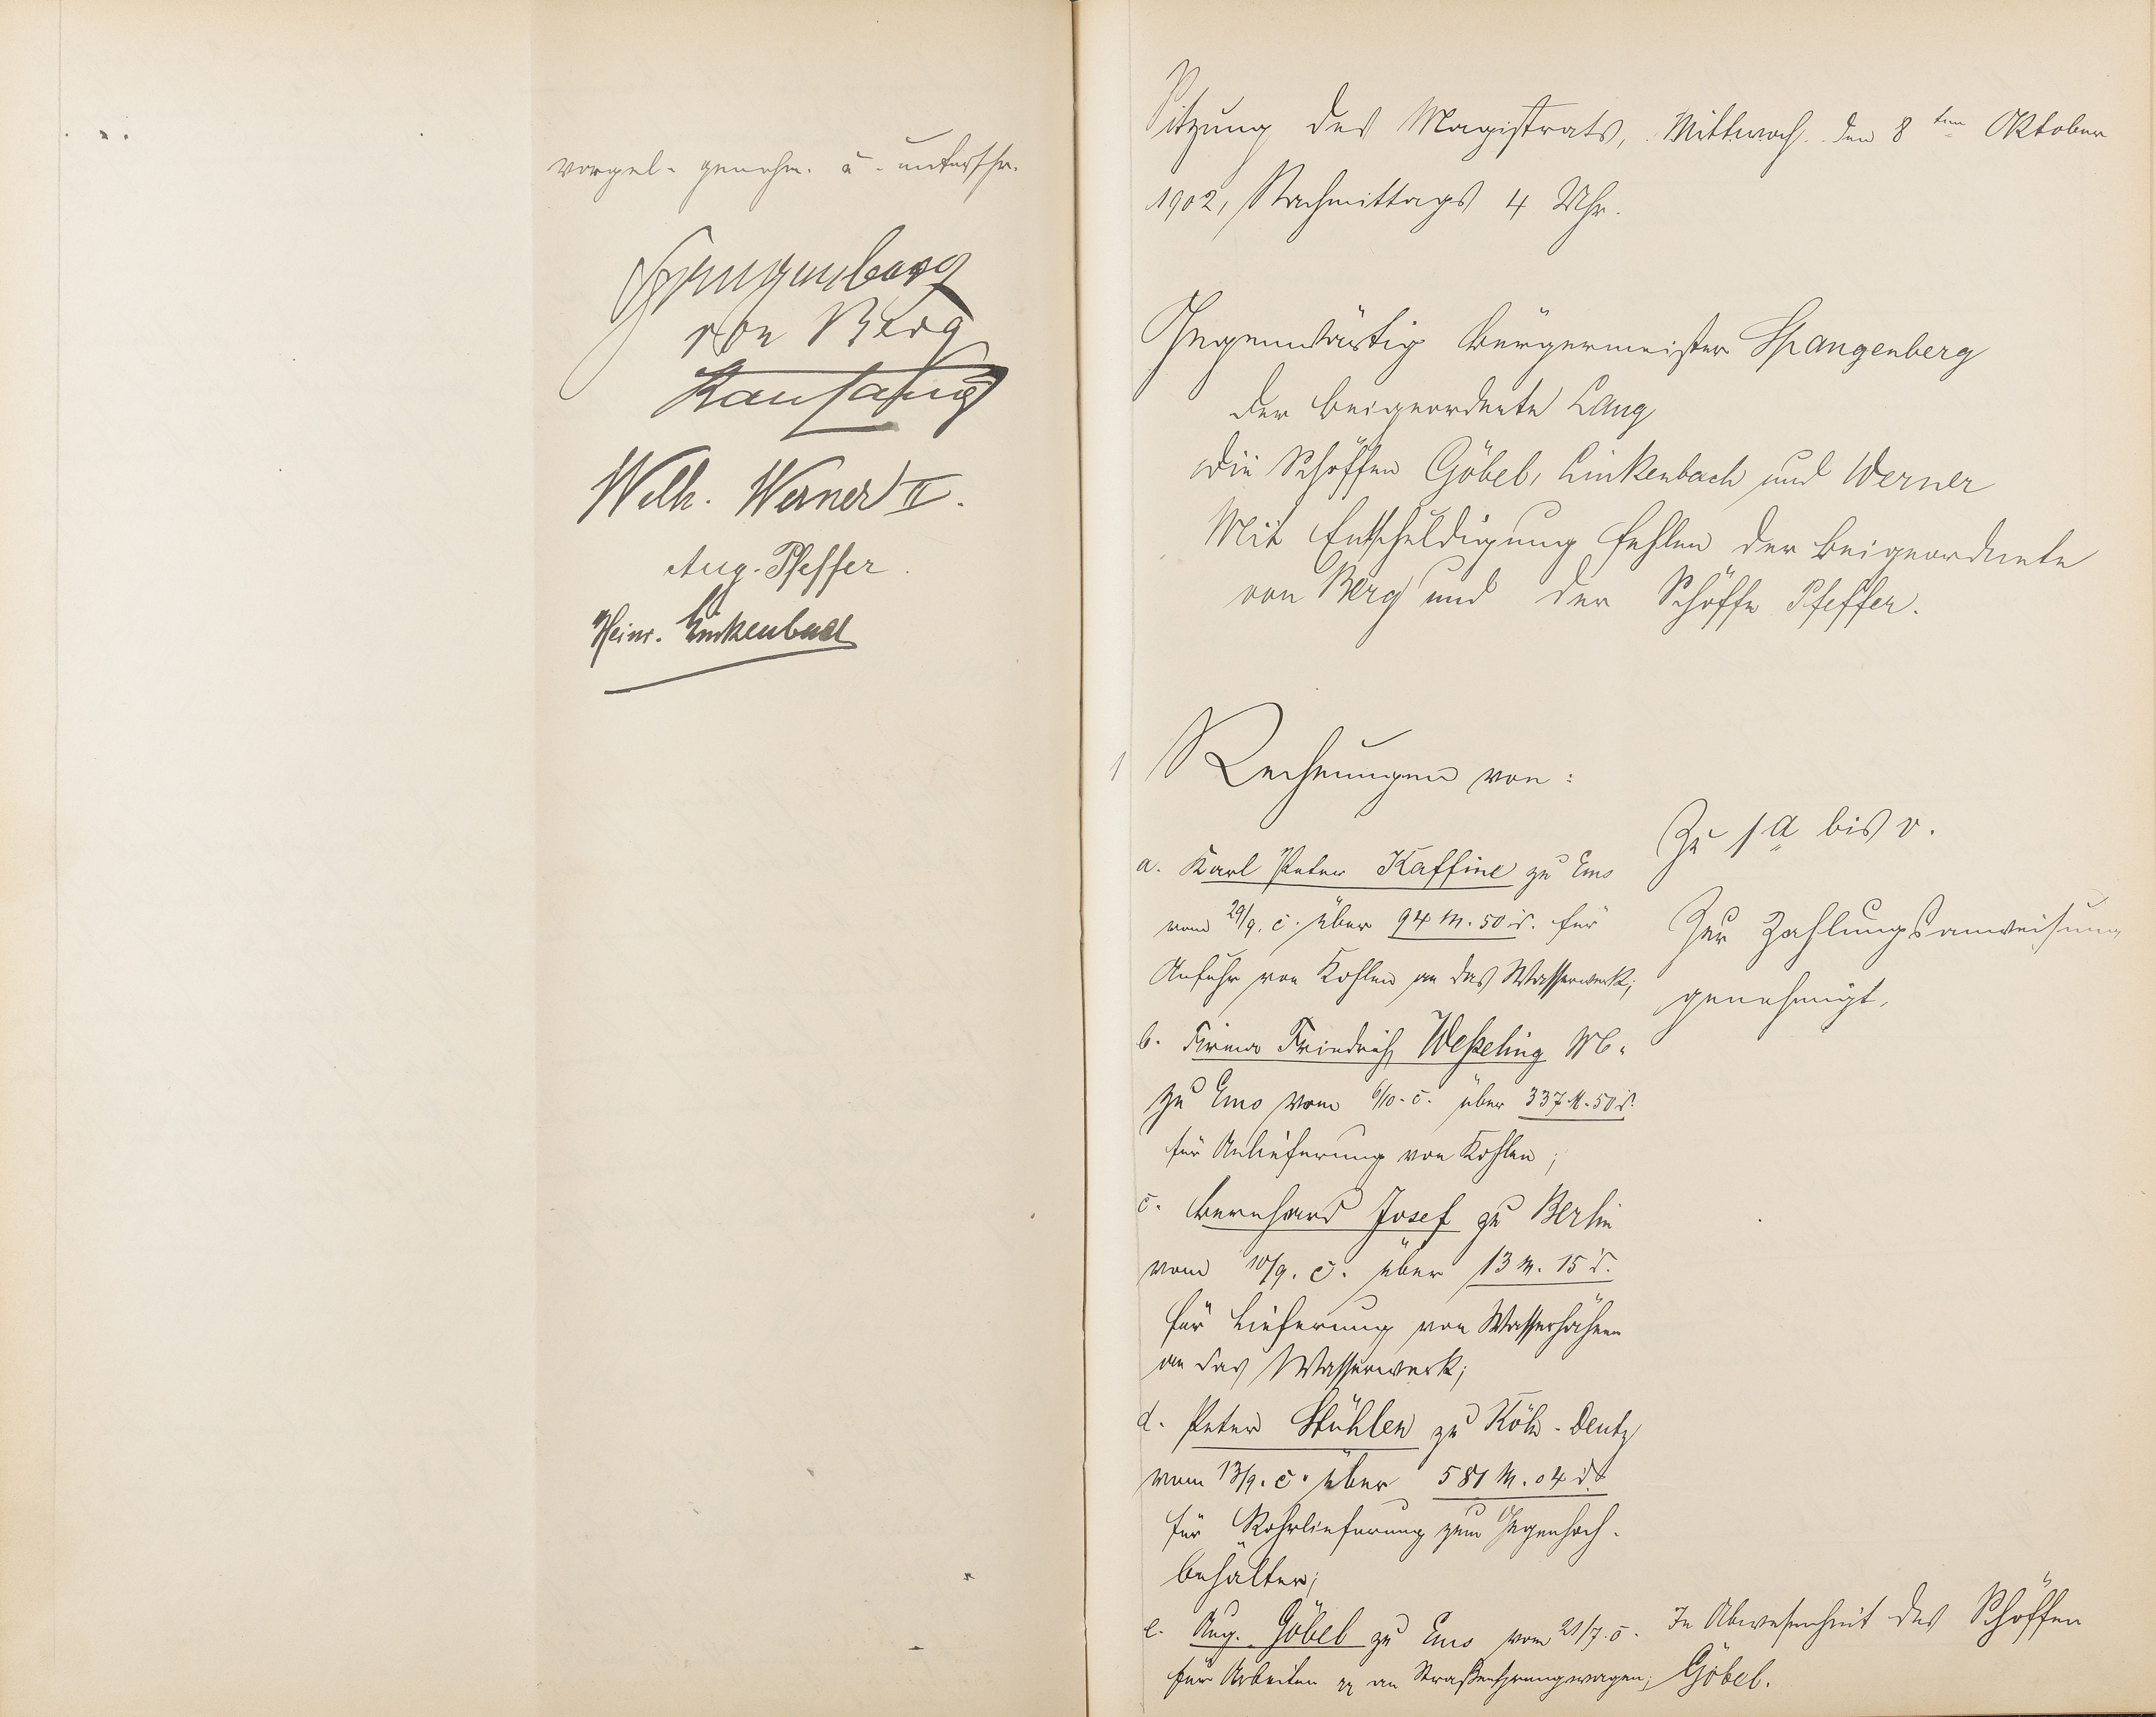 vorgel. genehm. u. unterschr.
Spangenberg
von Berg
Wilh. Werner II.
Aug. Pfeffer.
Heinr. Linkenbach
Sitzung des Magistrats, Mittwoch den 8ten Oktober
1902, Nachmittags 4 Uhr.
Gegenwärtig Bürgermeister Spangenberg
der Beigeordnete Lang
die Schöffen Göbel, Linkenbach und Werner
Mit Entschuldigung fehlen der Beigeordnete
von Berg und der Schöffe Pfeffer.
1 Rechnungen von:
a. Karl Peter Kaffine zu Ems
vom 29/9. c. über 94 M. 50 d. für
Anfuhr von Kohlen an das Wasserwerk;
b. Firma Friedrich Weßeling
zu Ems vom 6/10. c. über 337 M. 50 d.
für Anlieferung von Kohlen;
c. Bernhard Josef zu Berlin
vom 10/9. c. über 13 M. 15 d.
für Lieferung von Wasserhähnen
an das Wasserwerk;
d. Peter Stühlen zu Köln-Deutz
vom 13/9. c. über 581 M. 04 d.
für Rohrlieferung zum Gegenhoch-
behälter;
e. Aug. Göbel zu Ems vom 21/7. c.
für Arbeiten an Straßensprengwagen;
Zu 1 a bis v.
Zur Zahlungsanweisung
genehmigt.
In Abwesenheit des Schöffen
Göbel.